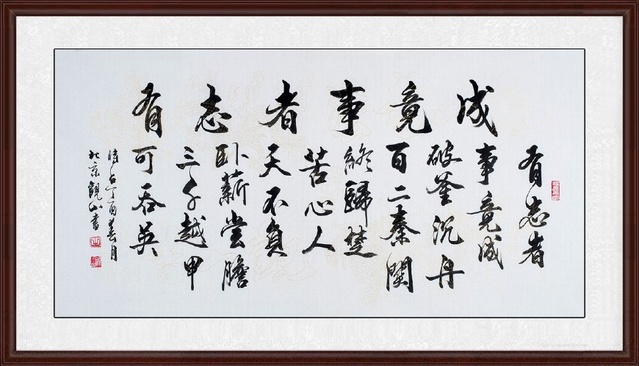 有志者事竟成
有志者
事竟成
破釜沉舟
百二秦關
終歸楚
苦心人
天不負
卧薪嘗膽
三千越甲
可吞吴
時在丁酉春月
北京觀山書